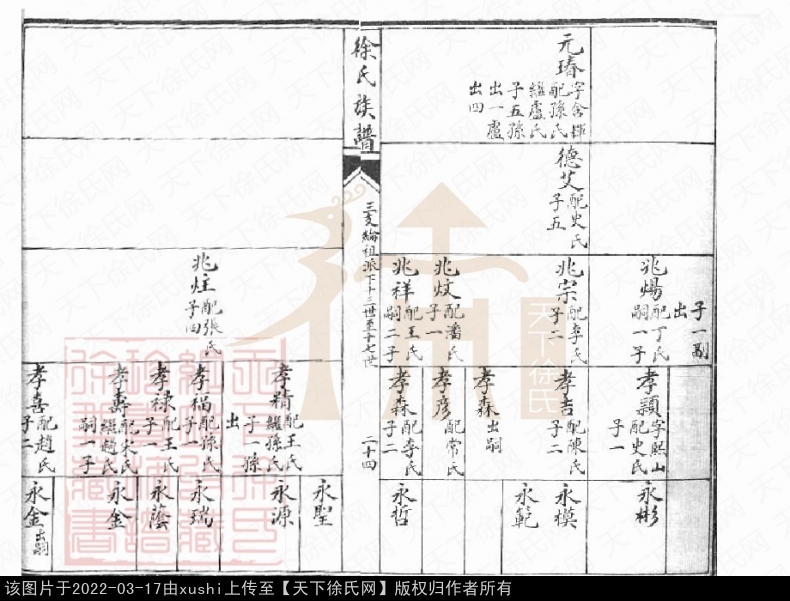 元瑃 字舍輝 配孫氏 繼盧氏 子五孫 出一盧 出四
德艾 配史氏 子五
子一副 出
兆煬 配丁氏 嗣一子
兆宗 配李氏 子二
兆炆 配潘氏 子一
兆祥 配王氏 嗣二子
孝穎 字熙山 配史氏 子一
孝吉 配陳氏 子二
孝森 出嗣
孝彦 配常氏
孝森 配李氏 子二
永彬
永模
永範
永哲
徐氏族譜
三支綸祖派下十三世至十七世
二十四
兆炷 配張氏 子四
孝精 配王氏 繼孫氏 子一孫 出
孝福 配孫氏 子一
孝祿 配王氏 子一
孝壽 配宋氏 繼趙氏 嗣一子
孝喜 配趙氏 子二
永聖
永源
永瑞
永蔭
永金
永金 出嗣
天下徐氏
该图片于2022-03-17由xushi上传至【天下徐氏网】版权归作者所有